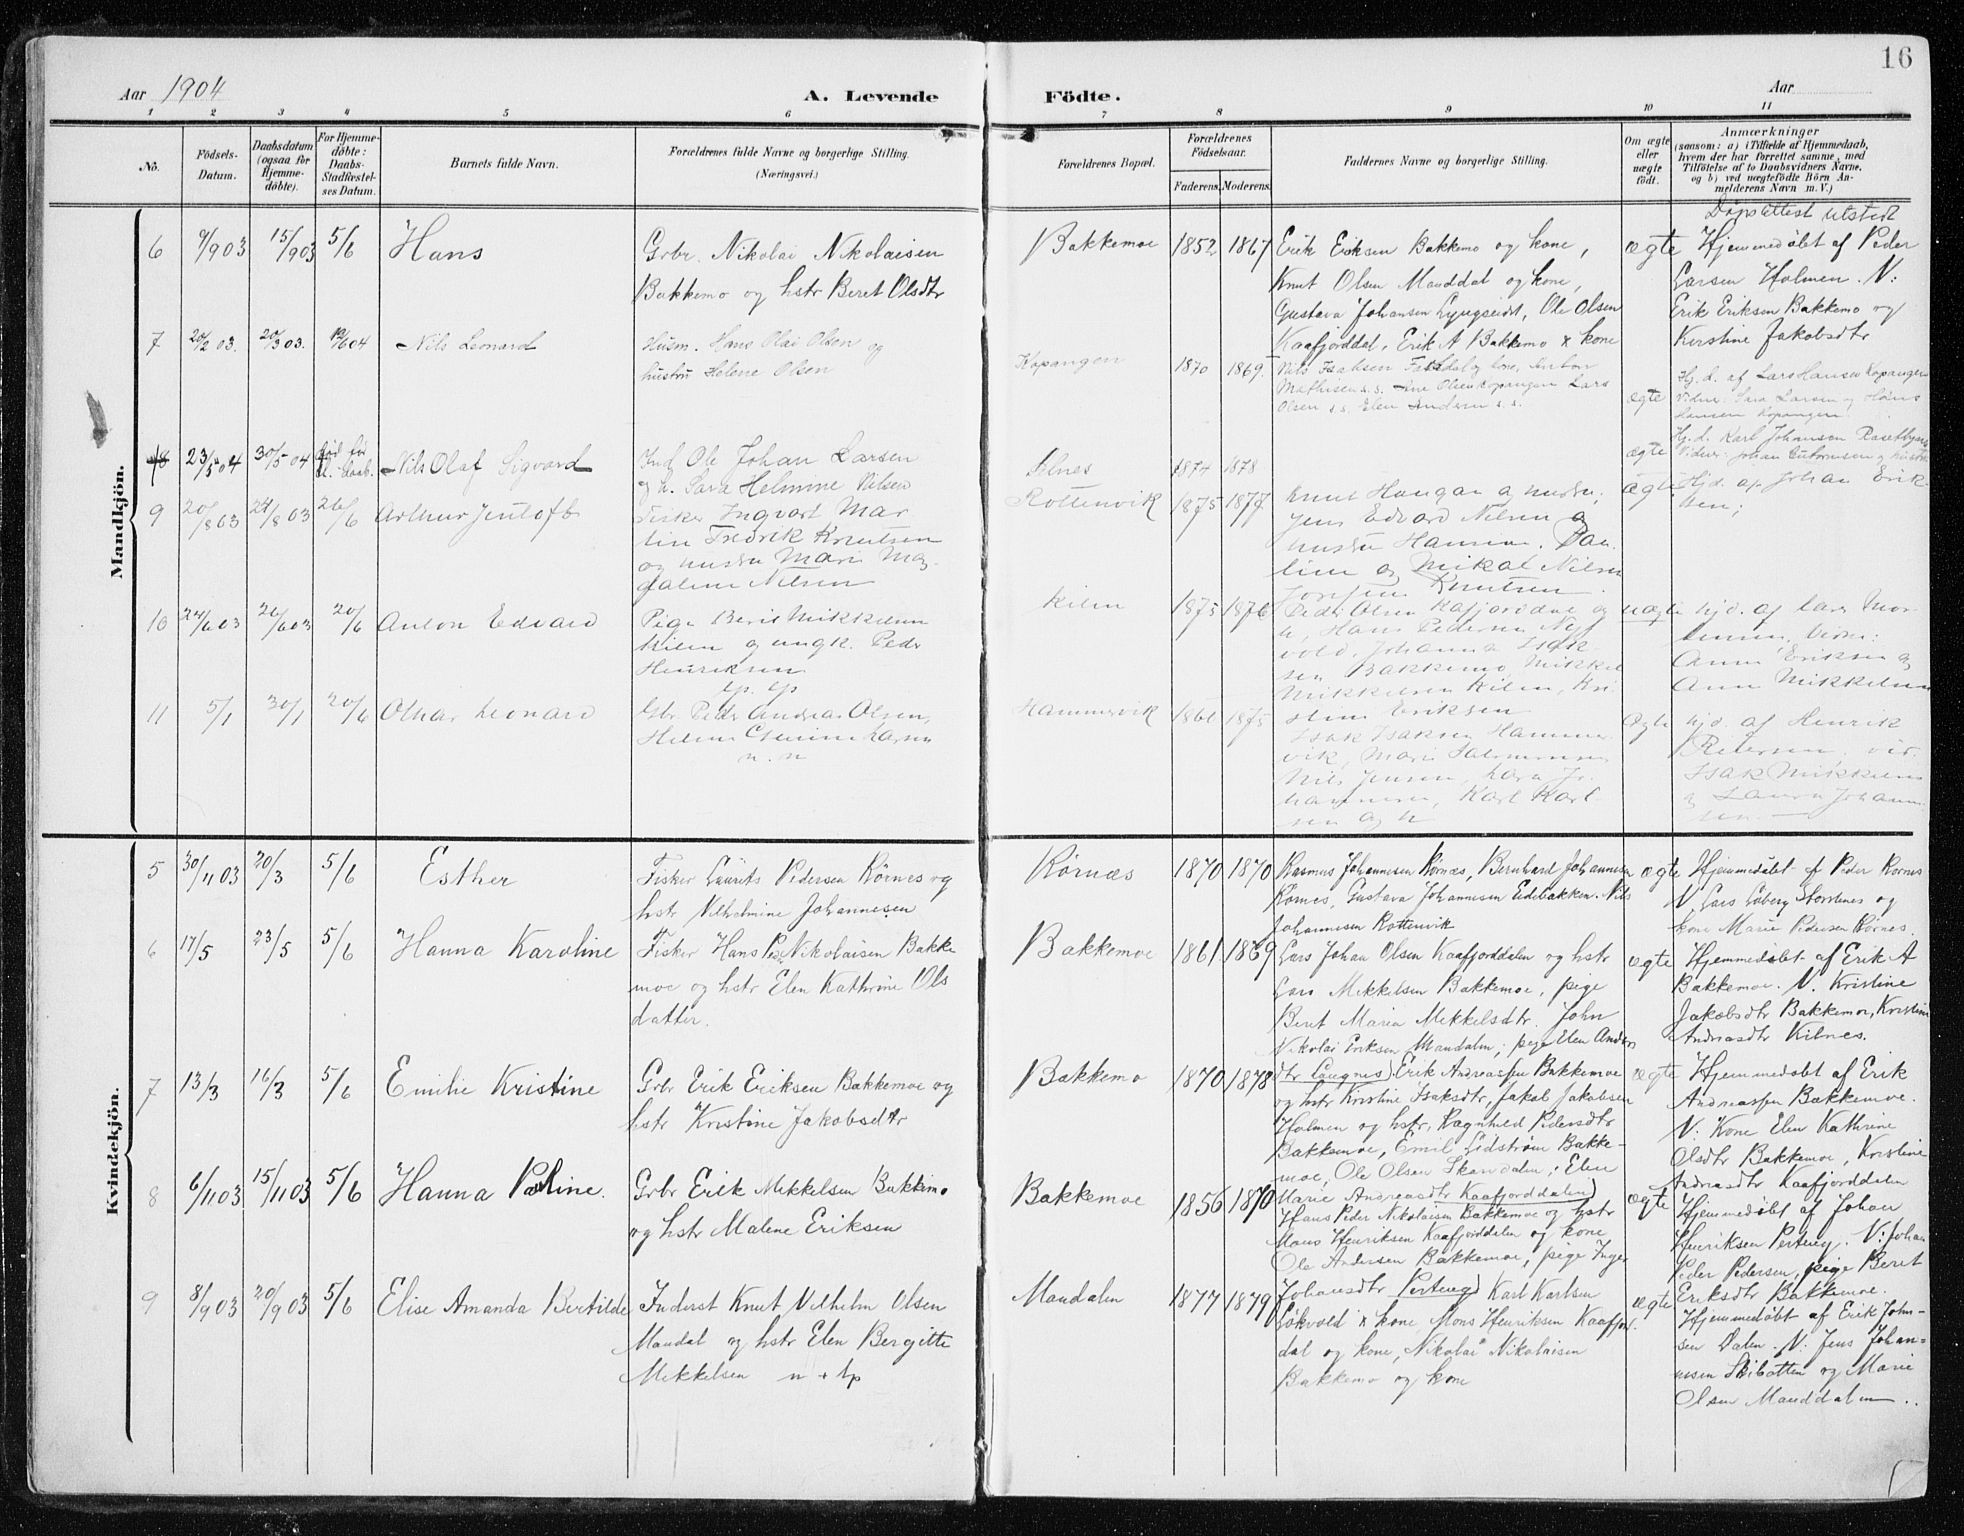 16
Aar 1904
A. Levende
Födte.
Aar
1 2 3 4 5 6 7 8 9 10 11
No.
Födsels-
Datum.
Daabsdatum
(ogsaa for
Hjemme-
döbte).
For Hjemme-
döbte:
Daabs-
Stadfæstel-
ses Datum.
Barnets fulde Navn.
Forældrenes fulde Navne og borgerlige Stilling.
(Næringsvei.)
Forældrenes Bopæl.
Forældrenes
Födselsaar.
Faderens. Moderens.
Faddernes Navne og borgerlige Stilling.
Om ægte
eller
uægte
födt.
Anmærkninger
(saasom: a) i Tilfælde af Hjemmedaab,
hvem der har forrettet samme, med
Tilföielse af to Daabsvidners Navne,
og b) ved uægtefödte Börn An-
melderens Navn m. V.)
Mandkjön.
6 9/9 03 15/9 03 5/6 Hans
Grbr. Nikolai Nikolaisen
Bakkemo og hstr Beret Olsdtr
Bakkemoe 1852 1867
Erik Eriksen Bakkemo og kone,
Knut Olsen Manddal og kone,
Gustava Johansen Lyngseidet, Ole Olsen
Kaafjorddal, Erik A Bakkemo & kone
ægte
Döpsattest utstedt
Hjemmedöbt af Peder
Larsen Holmen. V:
Erik Eriksen Bakkemo og
Kirstine Jakobsdtr
7 20/2 03. 20/3 03. 19/6 04 Nils Leonard
Husm. Hans Olai Olsen og
hustru Helene Olsen
Kopangen 1870 1869.
Nils Isaksen og kone, Anton
Mathisen s.s. Ane Olsen Kopangen Lars
Olsen s.s. Elen s.s.
ægte
Hj. d. af Lars Hansen Kopangen
Vidner: Sara Larsen og Hans
Hansen Kopangen
8 23/5 04 30/5 04 Nils Olaf Sigvard
Ind. Ole Johan Larsen
og h. Sara Helmine Nilsen
1874 1878
ægte
Hj. d. Karl Johansen
Vidner: Johan og hustru
9 20/8 03 24/8 03 26/6 Arthur Jentoft
Fisker Ingvart Mar
tin Fredrik Knutsen
og hustru Marie Mag
dalene Nilsen
Rottenvik 1875 1877
Knut Haugan og hustru,
Jens Edvard Nilsen og
hustru Hansine.
og Mikal Nilsen
Knutsen.
ægte
Hjd. af Johan Erik
sen;
10 24/6 03 26/6 03 20/6 Anton Edvard
Pige Berit Mikkelsen
Kilen og ungk. Peder
Henriksen
Kilen 1875 1876
Peder Olsen Kafjorddal og
h, Hans Pedersen
vold, Johanna Isak
sen Bakkemo, Mikkel
Mikkelsen Kilen, Kri
stine Eriksen
uægte
hjd. af Lars Mor
tensen, Vidn:
Anne Eriksen og
Ane Mikkelsen
11 5/1 30/1 20/6 Othar Leonard
Gbr Peder Andreas Olsen,
Helene Larsen
n. n
Hammervik 1875
Isak Isaksen Hammer
vik, Marie
Nils Jensen, Lara Jo
hannesen, Karl Karl
sen og h
Ægte
hjd. af Henrik
Petersen. vid.
Isak Mikkelsen
og Johann
sen.
Kvindekjön.
5 30/11 03 20/3 5/6 Esther
Fisker Laurits Pedersen Körnes og
hstr Vilhelmine Johannesen
Körnæs 1870 1870
Rasmus Johannesen Körnæs, Bernhard Johannesen
Körnes, Gustava Johannesen Eidebakken. Nils
Johannesen Rottenvik
ægte
Hjemmedöbt af Peder Körnes
V. Lars Loberg Storstenes og
kone Marie Pedersen Körnes.
6 17/5 23/5 5/6 Hanna Karoline
Fisker Hans Peder Nikolaisen Bakke
moe og hstr Elen Kathrine Ols
datter.
Bakkemoe 1861. 1869
Lars Johan Olsen Kaafjorddalen og hstr
Lars Mekkelsen Bakkemoe, pige
Beret Maria Mekkelsdtr. John
Nikolai Eriksen Mandalen; pige Elen Anders
dtr Langnes)
ægte
Hjemmedöbt af Erik A
Bakkemoe. V. Kristine
Jakobsdtr Bakkemoe, Kristine
Andreasdtr Kilnes.
7 13/3 16/3 5/6 Emilie Kristine
Grbr Erik Eriksen Bakkemoe og
hstr Kristine Jakobsdtr
Bakkemo 1870 1878
Erik Andreassen Bakkemoe
og hstr Kristine Isaksdtr, Jakob Jakobsen
Holmen og hstr, Ragnhild Pedersdtr
Bakkemoe, Emil Lidström Bakke-
moe, Ole Olsen Skardalen; Elen
Marie Andreasdtr Kaafjorddalen)
ægte
Hjemmedöbt af Erik
Andreassen Bakkemoe.
V: Kone Elen Kathrine
Olsdtr Bakkemoe, Kristine
Andreasdtr Kaafjorddalen
8 6/11 03 15/11 03 5/6 Hanna Pauline.
Grbr Erik Mekkelsen Bakkemo
og hstr Malene Eriksen
Bakkemoe 1856 1870
Hans Peder Nikolaisen Bakkemoe og hstr
Mons Henriksen Kaafjorddalen og kone
Ole Andersen Bakkemoe, pige Inger
Johansdtr
ægte
Hjemmedöbt af Johan
Henriksen. V: Johan
Peder Pedersen, pige Beret
Eriksdtr Bakkemoe.
9 8/9 03 20/9 03 5/6 Elise Amanda Bertilde
Inderst Knut Vilhelm Olsen
Mandal og hstr Elen Bergitte
Mekkelsen n + lp
Mandalen 1877 1879
Karl Karlsen
Lökvold & kone Mons Henriksen Kaafjor.
dal og kone, Nikolai Nikolaisen
Bakkemo og kone
ægte
Hjemmedöbt af Erik John-
sen Dalen. V. Jens Johan-
nesen Skibotten og Marie
Olsen Manddalen.